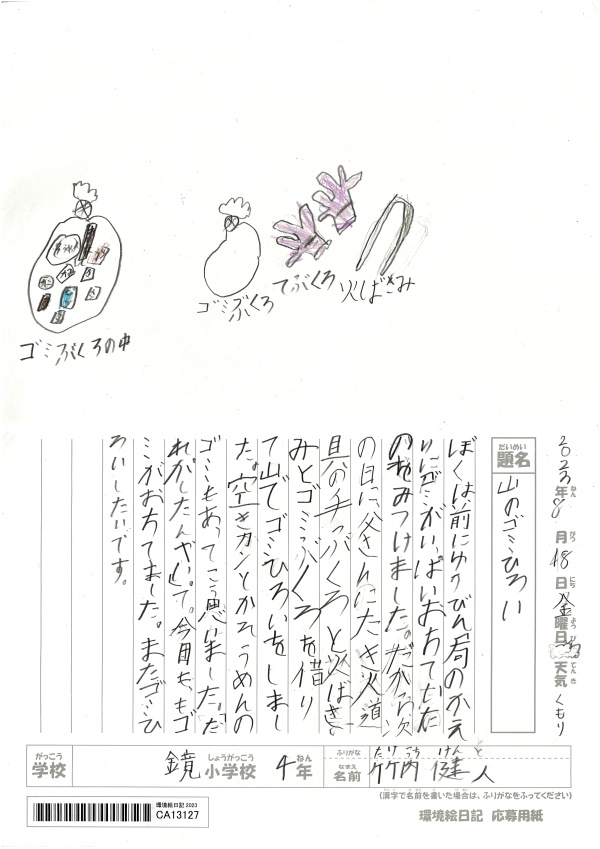 ゴミぶくろ
てぶくろ
火ばさみ
ゴミぶくろの中
2023年8月18日金曜日
天気くもり
だいめい
題名
山のゴミひろい
ぼくは前にゆうびん局のかえ
りにゴミがいっぱいおちていた
のをみつけました。だから次
の日に父さんにたき火道
具の手ッバくろと火ばさ
みとゴミぶくろを借り
て山でゴミひろいをしまし
た。空きカンとかそうめんの
ゴミもあってこう思いました。「だ
れがしたんや」って。今日も、もゴ
ミがおちてました。またゴミひ
ろいしたいです。
がっこう
学校
鏡小学校4年
しょうがっこう
ねん
ふりがな
たけ うち けん と
なまえ
名前
竹内 健人
(漢字で名前を書いた場合は、ふりがなをふってください)
環境絵日記 2023
CA13127
環境絵日記 応募用紙